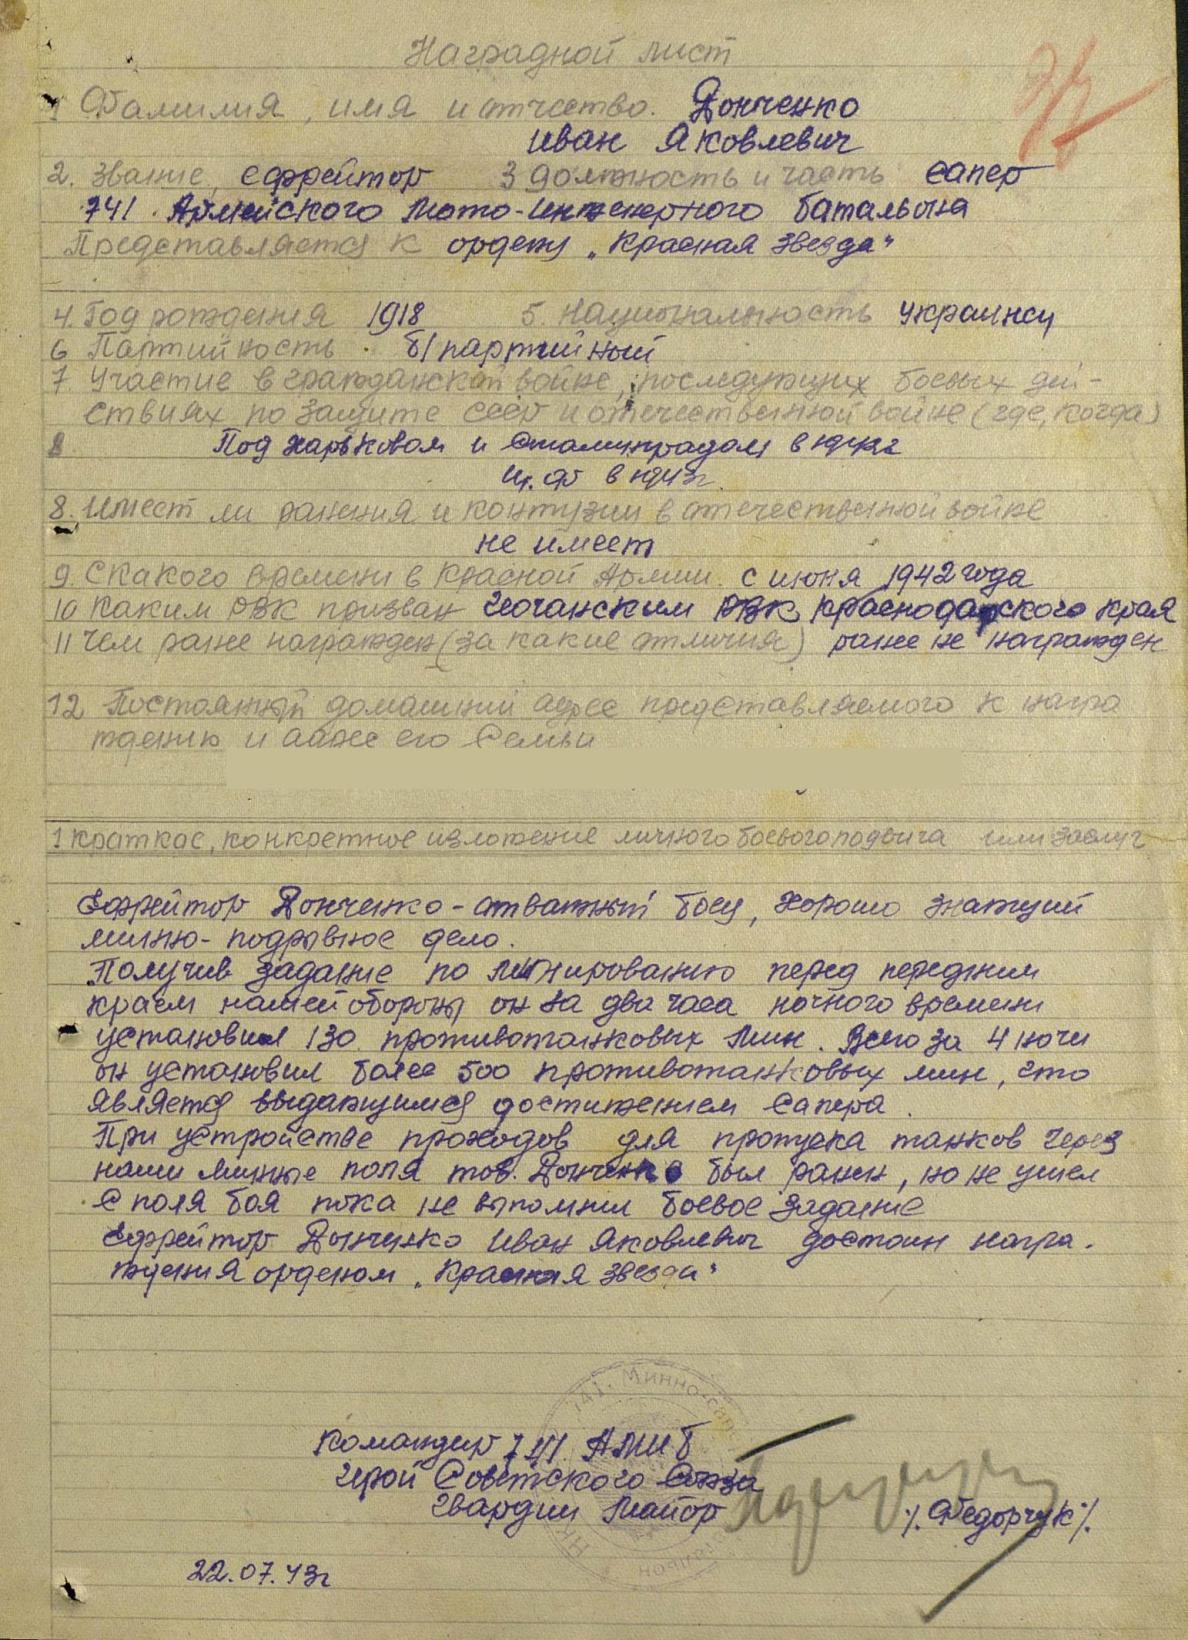 Наградной лист
1 Фамилия, имя и отчество. Донченко
Иван Яковлевич
2. Звание, ефрейтор 3 должность и часть сапер
741 Армейского Мото-Инженерного батальона
Представляется к ордену "Красная Звезда"
4. Год рождения 1918 5. Национальность украинец
6 Партийность б/партийный
7. Участие в гражданской войне, последующих боевых дей-
ствиях по защите СССР и отечественной войне (где, когда)
8 Под Харьковом и Сталинградом в 1942г
в 1943г.
8. Имеет ли ранения и контузии в отечественной войне
не имеет
9. С какого времени в Красной Армии. с июня 1942 года
10 Каким РВК призван РВК Краснодарского края
11 Чем ранее награжден (за какие отличия) ранее не награжден
12 Постоянный домашний адрес представляемого к награ
ждению и адрес его семьи
1 Краткое, конкретное изложение личного боевого подвига или заслуг
Ефрейтор Донченко - отважный боец, хорошо знающий
минно-подрывное дело.
Получив задание по минированию перед передним
краем нашей обороны он за два часа ночного времени
установил 130 противотанковых мин. Всего за 4 ночи
он установил более 500 противотанковых мин, что
является выдающимся достижением сапера.
При устройстве проходов для пропуска танков через
наши минные поля тов. Донченко был ранен, но не ушел
с поля боя пока не выполнил боевое задание
Ефрейтор Донченко Иван Яковлевич достоин награ-
ждения орденом "Красная Звезда"
741. Минно-сап
Командир 741 АМИБ
Герой Советского Союза
Гвардии Майор /. Федорчук /.
22.07.43г